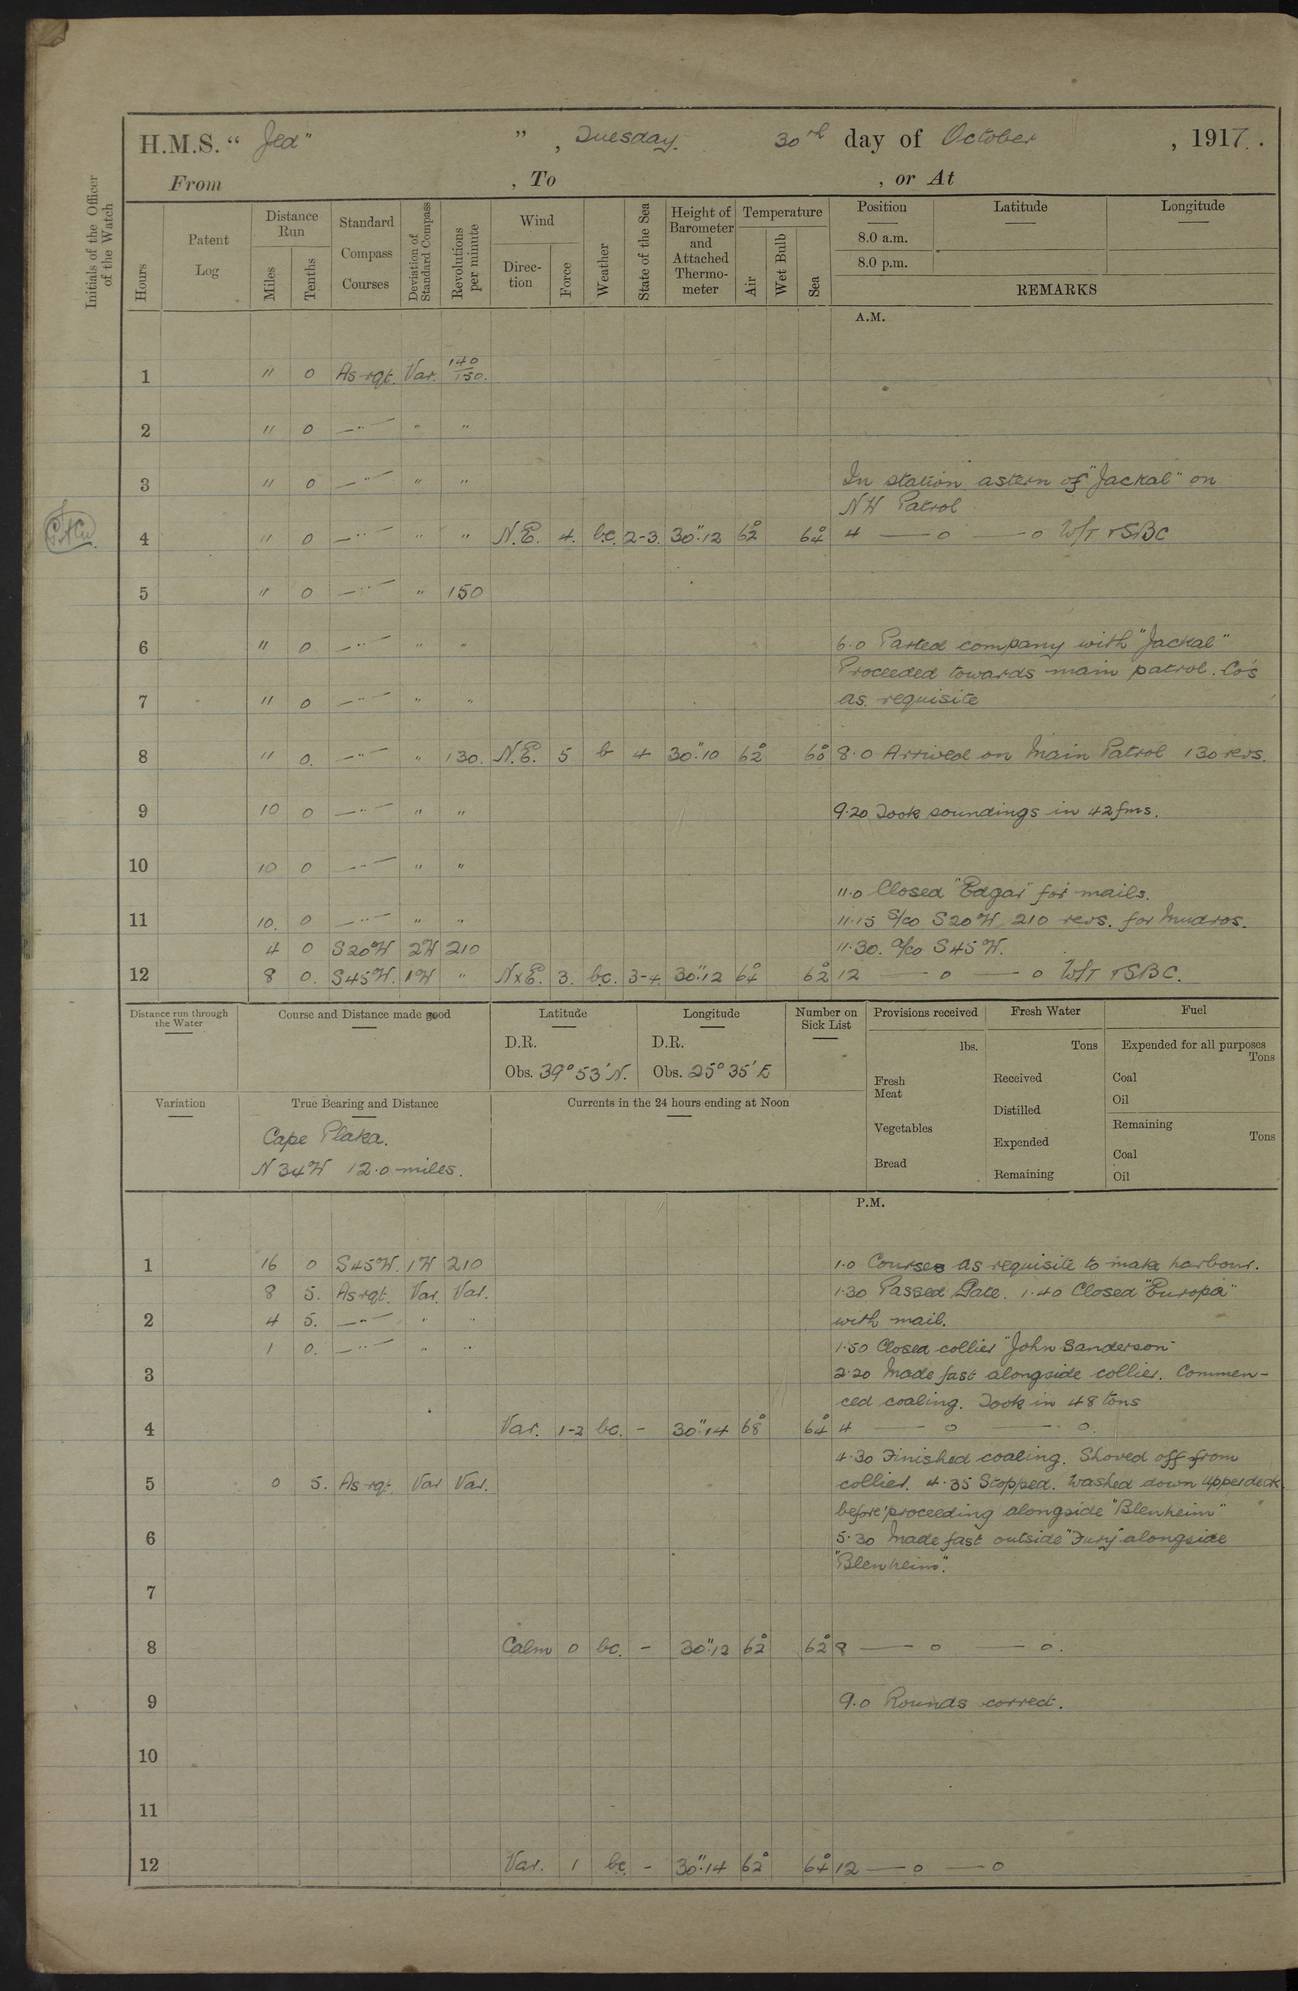 H.M.S. " Jed" " , Tuesday. 30th day of October , 1917.
From , To , or At
Initials of the Officer of the Watch
Hours
Patent Log
Distance Run
Miles
Tenths
Standard Compass Courses
Deviation of Standard Compass
Revolutions per minute
Wind
Direc-tion
Force
Weather
State of the Sea
Height of Barometer and Attached Thermo-meter
Temperature
Air
Wet Bulb
Sea
Position Latitude Longitude
8.0 a.m.
8.0 p.m.
REMARKS
A.M.
1 " 0 As rqt. Var. 140/150.
2 " 0 —"— " "
3 " 0 —"— " " In station astern of "Jackal" on
NW Patrol
4 " 0 —"— " " N.E. 4. b.c. 2-3. 30".12 62° 64° 4 — o — o W/T TSBC
5 " 0 —"— " 150
6 " 0 —"— " " 6.0 Parted company with "Jackal"
Proceeded towards main patrol. Co's
7 " 0 —"— " " as requisite
8 " 0. —"— " 130. N.E. 5 b 4 30".10 62° 60° 8.0 Arrived on Main Patrol 130 revs.
9 10 0 —"— " " 9.20 Took soundings in 42 fms.
10 10 0 —"— " "
11.0 Closed "Edgar" for mails.
11 10. 0 —"— " " 11.15 a/co S20W 210 revs. for Mudros.
4 0 S20W 2W 210 11.30. a/co S45W.
12 8 0. S45W. 1W " NxE. 3. b.c. 3-4. 30".12 64° 62° 12 — o — o W/T TSBC.
Distance run through the Water
Course and Distance made good
Latitude
D.R.
Obs. 39° 53' N.
Longitude
D.R.
Obs. 25° 35' E
Number on Sick List
Provisions received
lbs.
Fresh Meat
Vegetables
Bread
Fresh Water
Tons
Received
Distilled
Expended
Remaining
Fuel
Expended for all purposes
Tons
Coal
Oil
Remaining
Tons
Coal
Oil
Variation
True Bearing and Distance
Cape Plaka.
N34W 12.0 miles.
Currents in the 24 hours ending at Noon
P.M.
1 16 0 S45W. 1W 210 1.0 Courses as requisite to make harbour.
8 5. As rqt. Var. Var. 1.30 Passed Gate. 1.40 Closed "Europa"
2 4 5. —"— " " with mail.
1 0. —"— " " 1.50 Closed collier "John Sanderson"
3 2.20 Made fast alongside collier. Commen-
ced coaling. Took in 48 tons
4 Var. 1-2 bc. - 30".14 68° 64° 4 — o — o.
4.30 Finished coaling. Shoved off from
5 0 5. As rqt. Var Var. collier. 4.35 Stopped. Washed down upperdeck
before proceeding alongside "Blenheim"
6 5.30 Made fast outside "Fury" alongside
"Blenheim".
7
8 Calm 0 bc. - 30".12 62° 62° 8 — o — o.
9 9.0 Rounds correct.
10
11
12 Var. 1 bc. - 30".14 62° 64° 12 — o — o